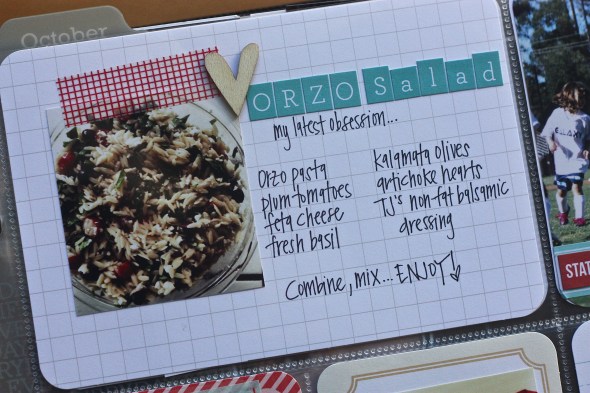 October
ORZO Salad
my latest obsession...
Orzo pasta
plum tomatoes
feta cheese
fresh basil
kalamata olives
artichoke hearts
TJ's non-fat balsamic
dressing
Combine, mix... ENJOY!
STAT